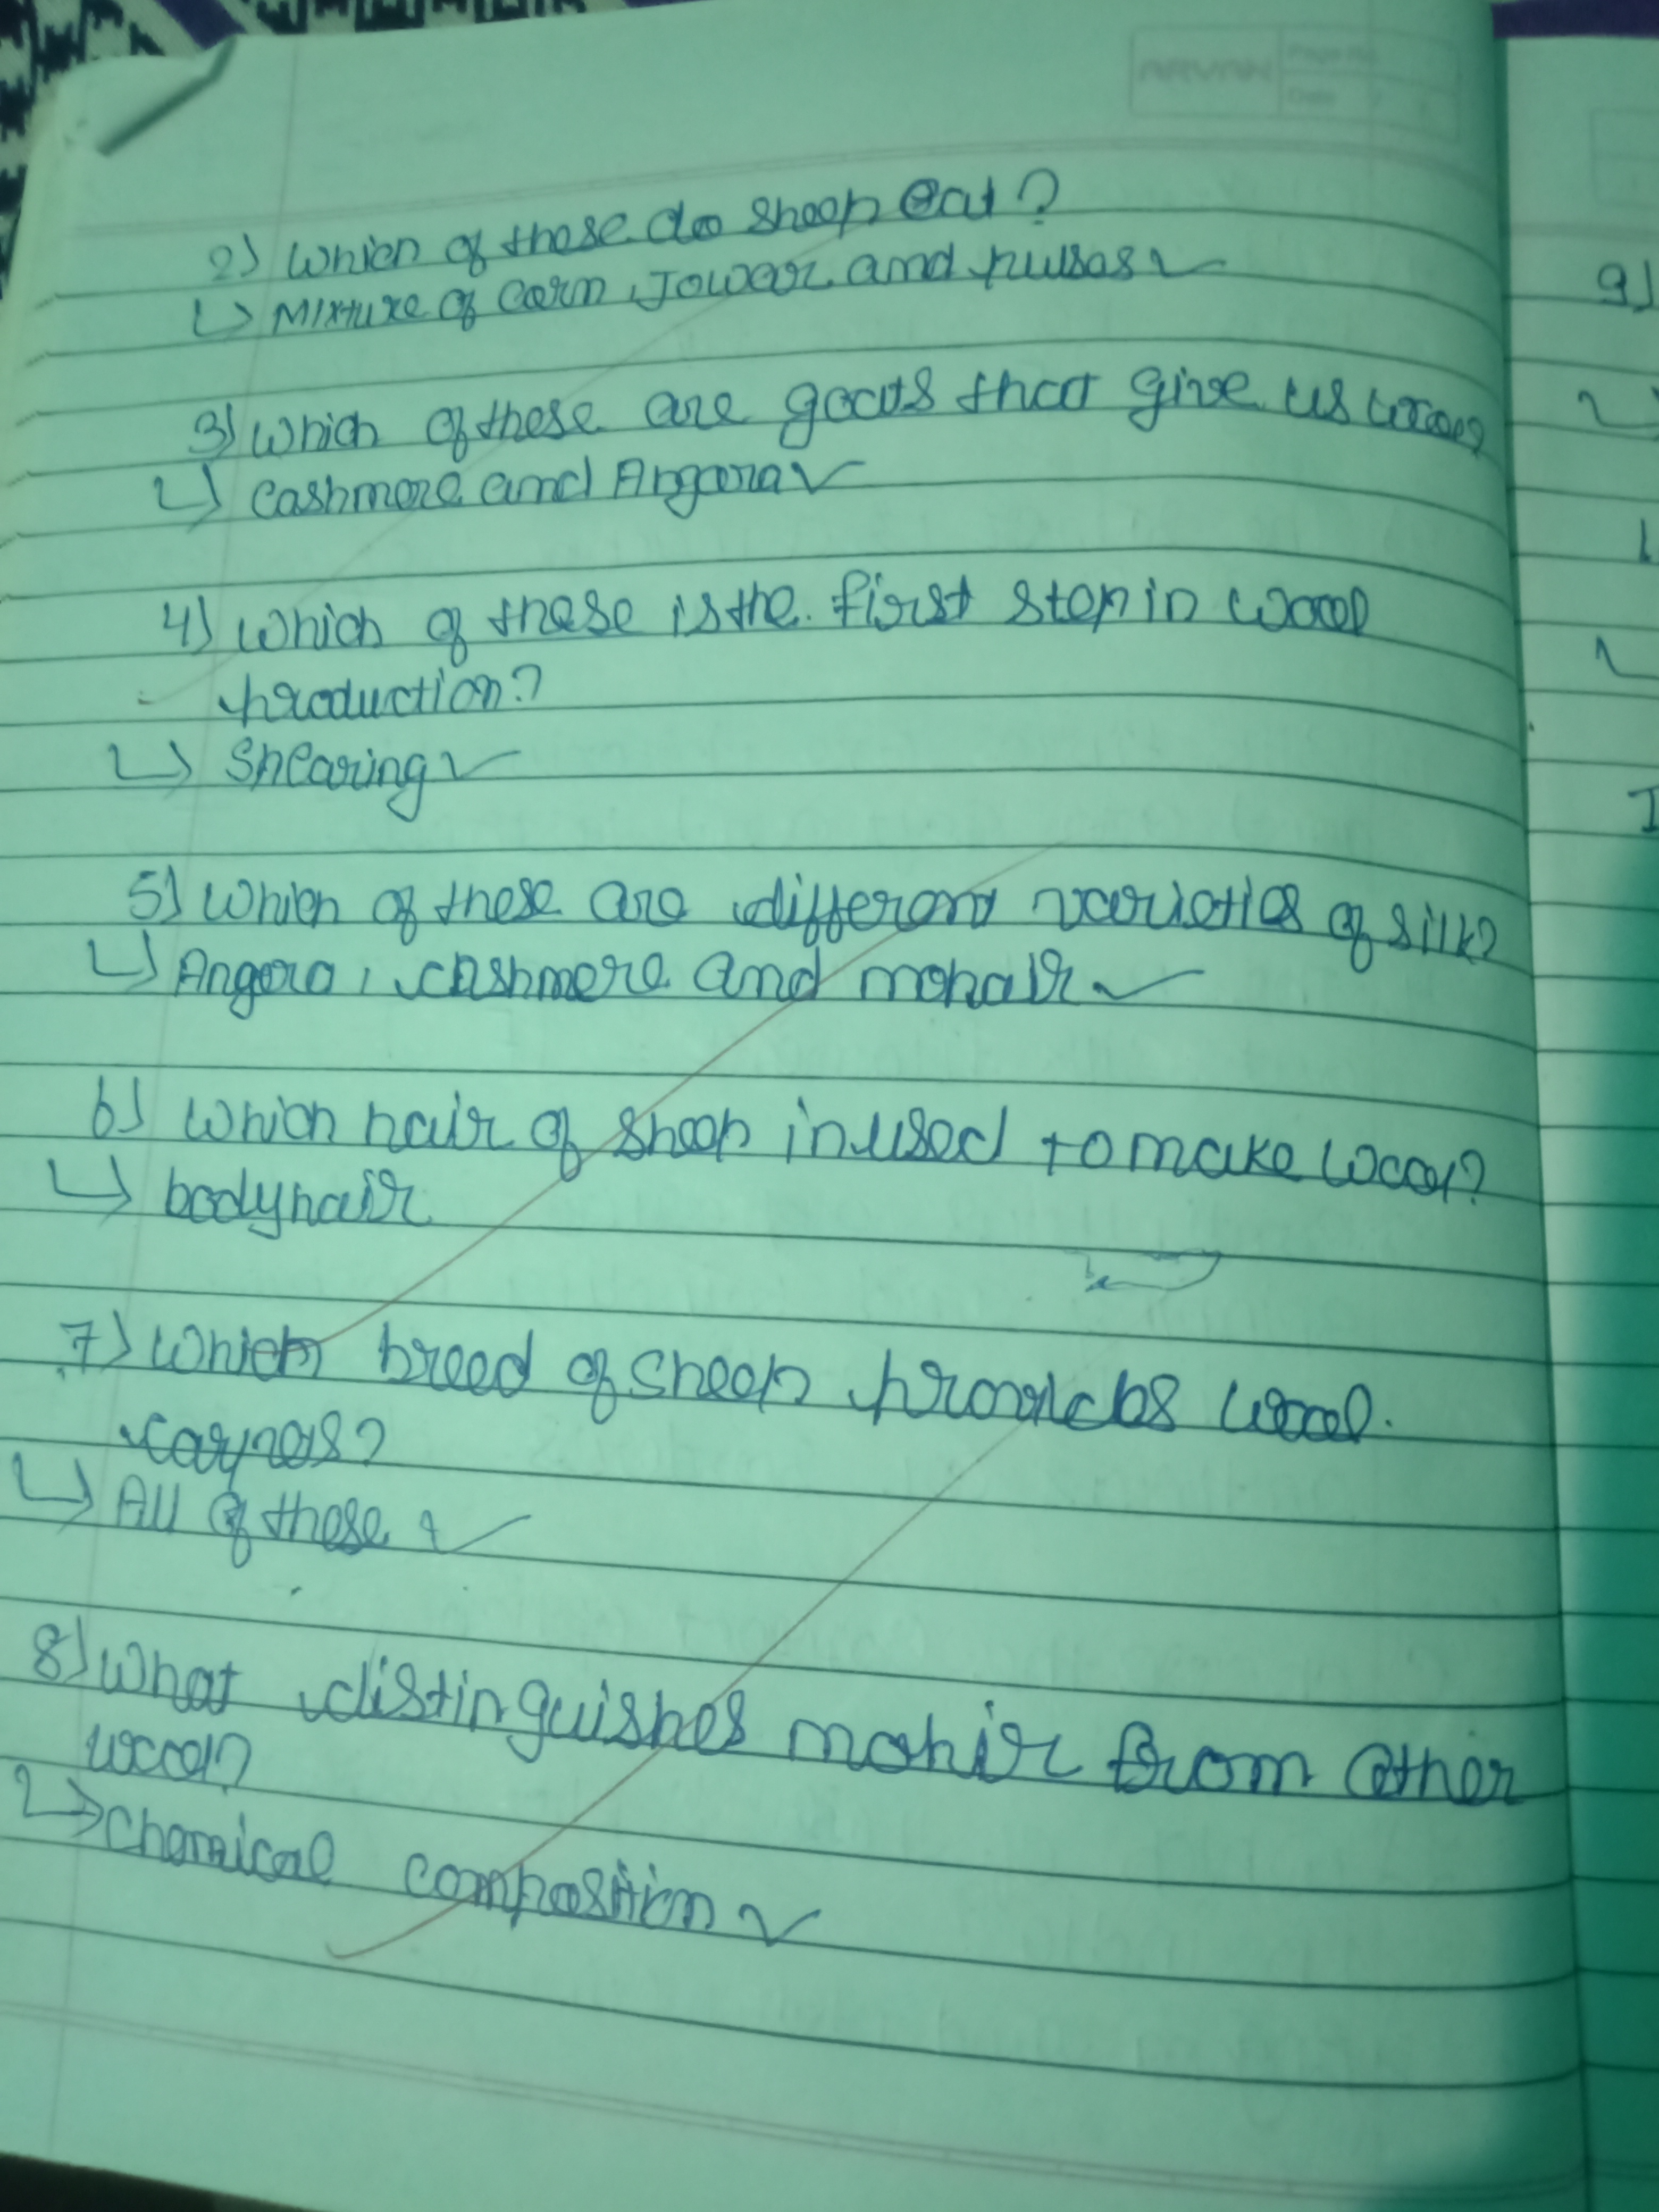 2) Which of these do sheep eat?
↳ Mixture of corn, Jowar and pulses ✓
3) Which of these are goats that give us wool?
↳ Cashmere and Angora ✓
4) Which of these is the first step in wool
production?
↳ Shearing ✓
5) Which of these are different varieties of silk?
↳ Angora, cashmere and mohair ✓
6) Which hair of sheep in used to make wool?
↳ bodyhair
7) Which breed of sheep provides wool
↳ All of these ✓
8) What distinguishes mohir from other
wool?
↳ Chemical composition ✓
9)